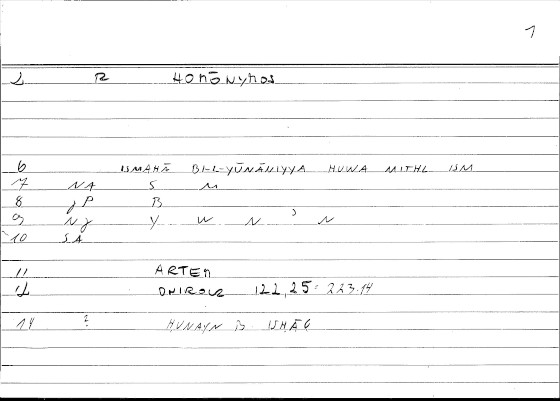 1
2 R HOMŌNYMOS
6 ISMAHĀ BI-L-YŪNĀNIYYA HUWA MITHL ISM
7 NA S M
8 JP B
9 NJ Y W N ʾ N
10 SA
11 ARTEM
12 ONIROCR 122,25 = 223.14
14 ? HUNAYN B. ISHĀQ